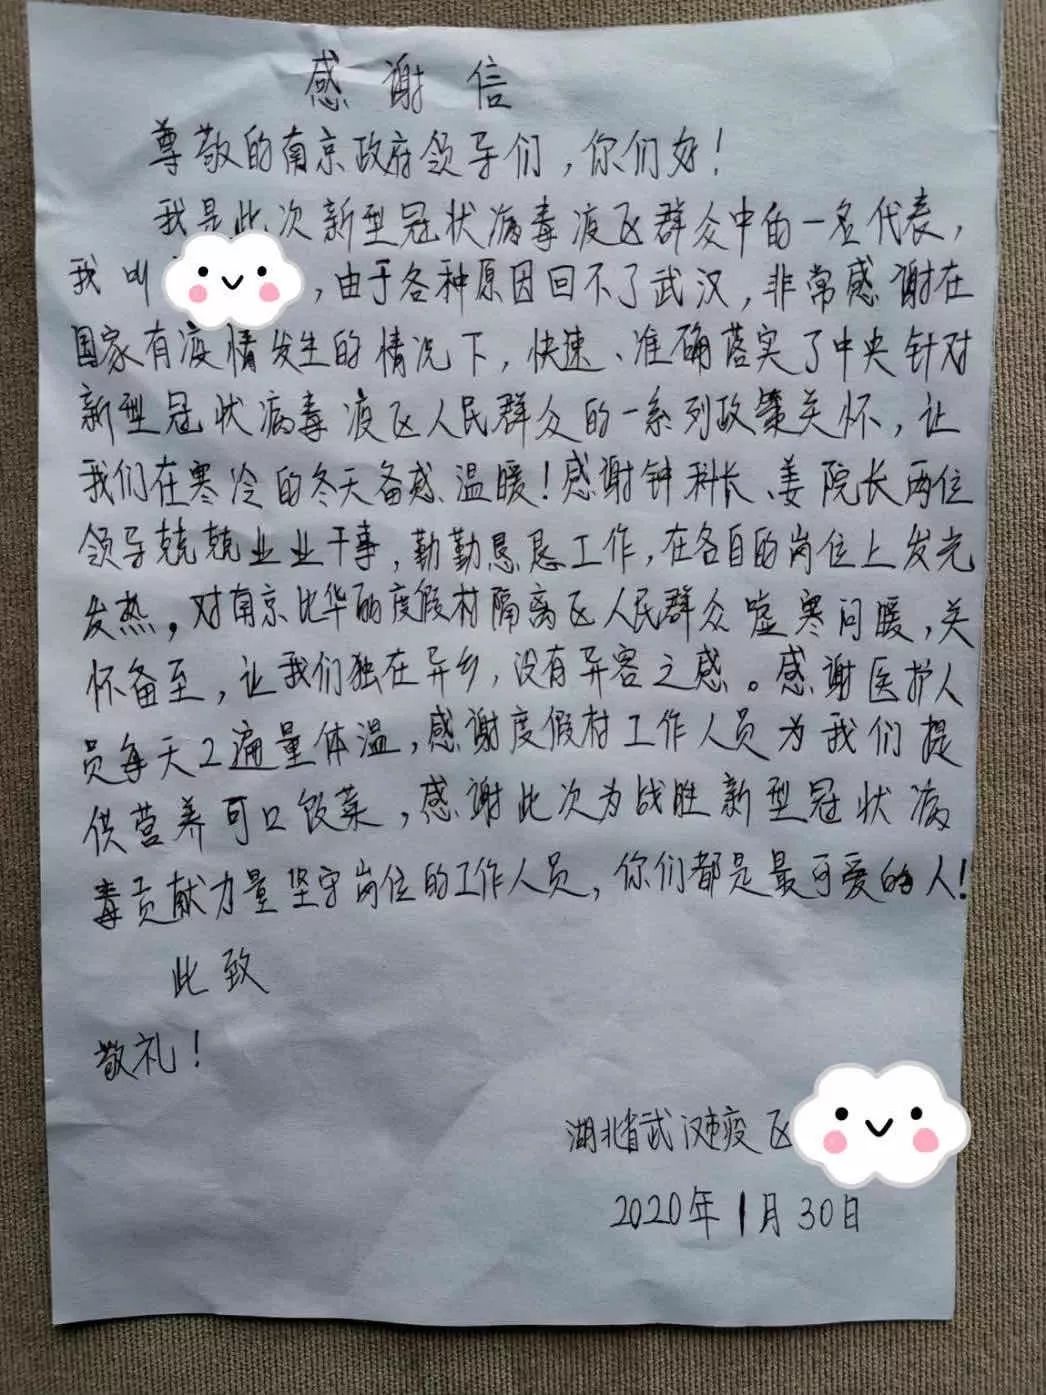 感谢信
尊敬的南京政府领导们，你们好！
我是此次新型冠状病毒疫区群众中的一名代表，
我叫，由于各种原因回不了武汉，非常感谢在
国家有疫情发生的情况下，快速、准确落实了中央针对
新型冠状病毒疫区人民群众的一系列政策关怀，让
我们在寒冷的冬天备感温暖！感谢钟科长、姜院长两位
领导兢兢业业干事，勤勤恳恳工作，在各自的岗位上发光
发热，对南京比华丽度假村隔离区人民群众嘘寒问暖，关
怀备至，让我们独在异乡，没有异客之感。感谢医护人
员每天2遍量体温，感谢度假村工作人员为我们提
供营养可口饭菜，感谢此次为战胜新型冠状病
毒贡献力量坚守岗位的工作人员，你们都是最可爱的人！
此致
敬礼！
湖北省武汉市疫区
2020年1月30日